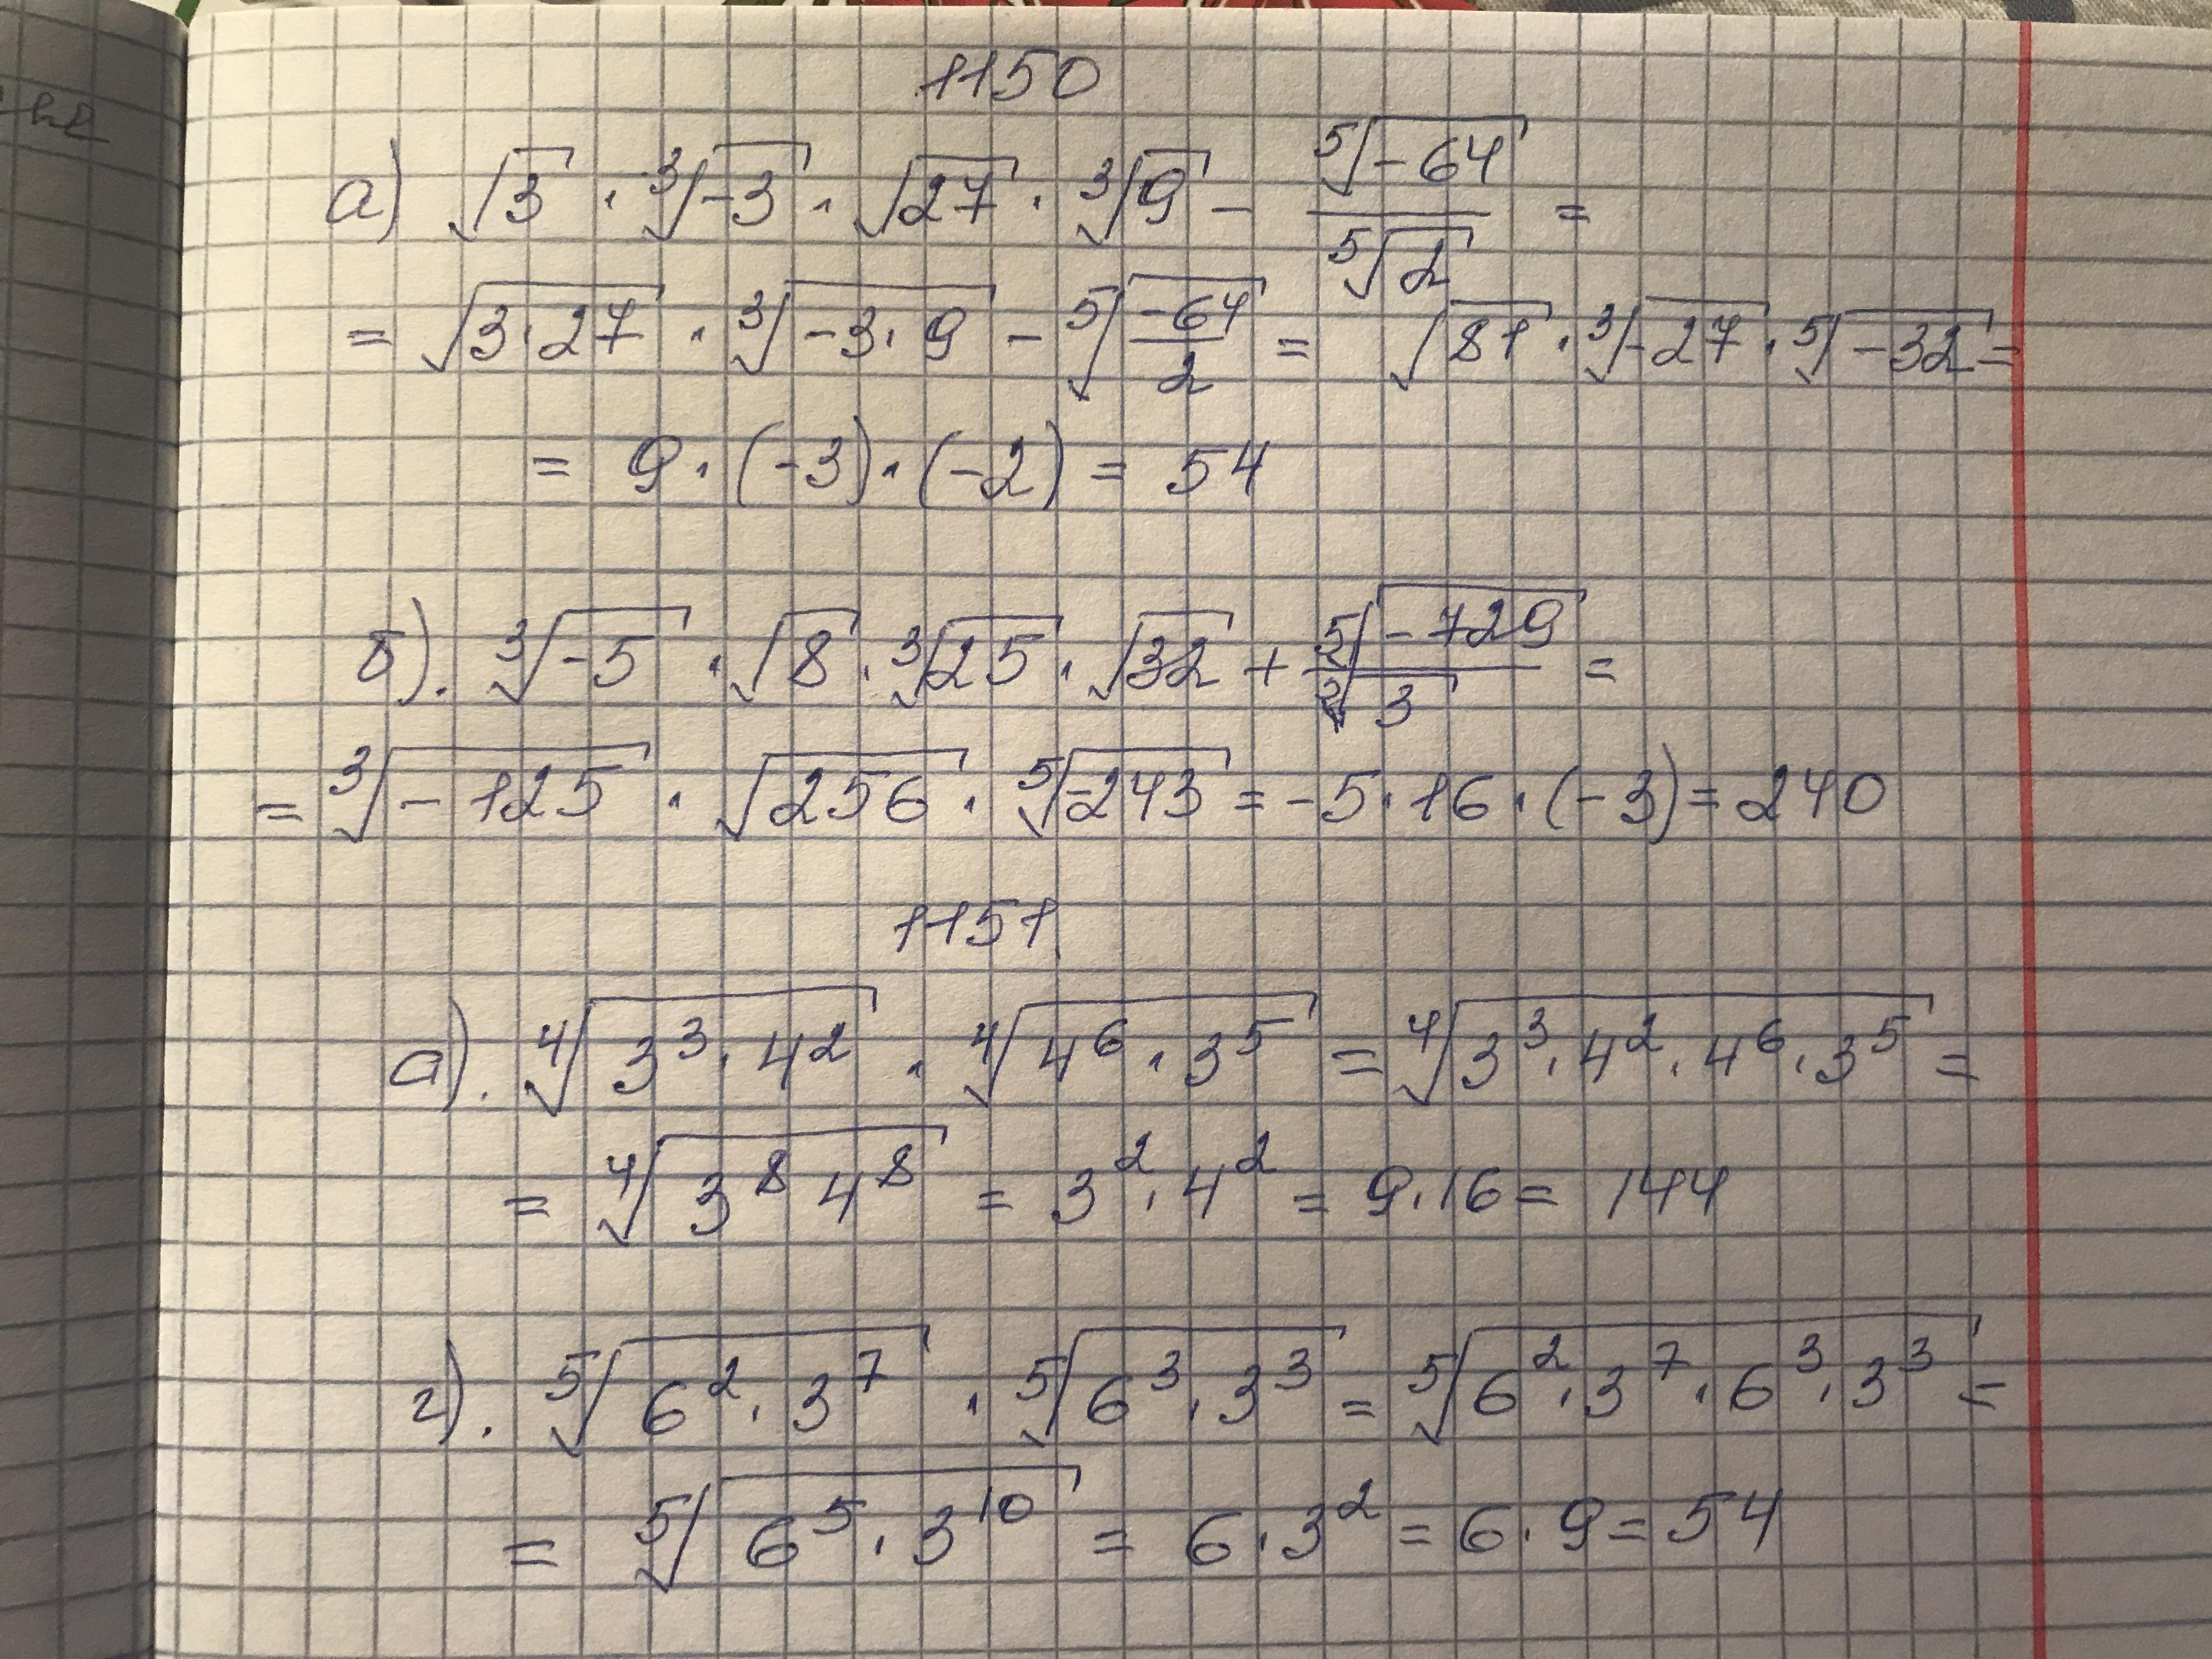 1150
а) √3 · ³√-3 · √27 · ³√9 - ⁵√-64 / ⁵√2 =
= √3·27 · ³√-3·9 - ⁵√-64/2 = √81 · ³√-27 · ⁵√-32 =
= 9 · (-3) · (-2) = 54
б). ³√-5 · √8 · ³√25 · √32 + ⁵√-729 / ⁵√3 =
= ³√-125 · √256 · ⁵√-243 = -5·16·(-3) = 240
1151
а). ⁴√3³·4² · ⁴√4⁶·3⁵ = ⁴√3³·4²·4⁶·3⁵ =
= ⁴√3⁸ 4⁸ = 3²·4² = 9·16 = 144
г). ⁵√6²·3⁷ · ⁵√6³·3³ = ⁵√6²·3⁷·6³·3³ =
= ⁵√6⁵·3¹⁰ = 6·3² = 6·9 = 54